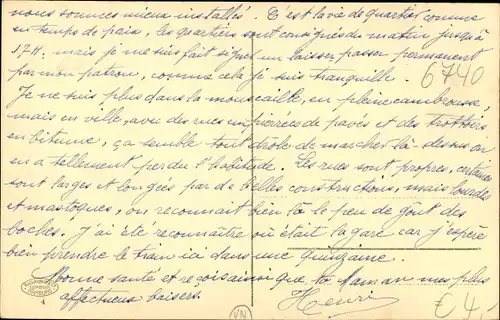 nous sommes mieux installés. C'est la vie de quartier comme
en temps de paix, les quartiers sont consignés du matin jusqu'à
17H. mais je me suis fait signer un laisser passer permanent
par mon patron, comme cela je suis tranquille.
6740
Je ne suis plus dans la mouscaille, en pleine cambrousse,
mais en ville, avec des rues empierrées de pavés et des trottoirs
en bitume, ça semble tout drole de marcher là-dessus on
en a tellement perdu l'habitude. Les rues sont propres, certaines
sont larges et longées par de belles constructions, mais lourdes
et mastoques, on reconnait bien là le peu de gout des
boches. J'ai été reconnaître où était la gare car j'espère
bien prendre le train ici dans une quinzaine.
Bonne santé et reçois ainsi que ta Maman mes plus
affectueux baisers.
Henri
4
VN
€ 4,-